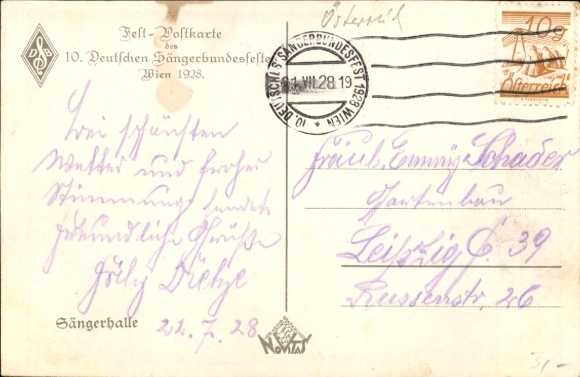 Fest-Postkarte
des
10. Deutschen Sängerbundesfestes
Wien 1928.
D B
Österreich
10. DEUTSCHES SÄNGERBUNDESFEST 1928 WIEN
21 VII 28 19
10g
Österreich
Bei schönsten
Wetter und froher
Stimmung sendet
freundliche Grüße
Fritz
Sängerhalle
22.7.28
NOVITAS
Fräul. Emmy Schader
Gartenbau
Leipzig C. 39
Russenstr. 26
3,-